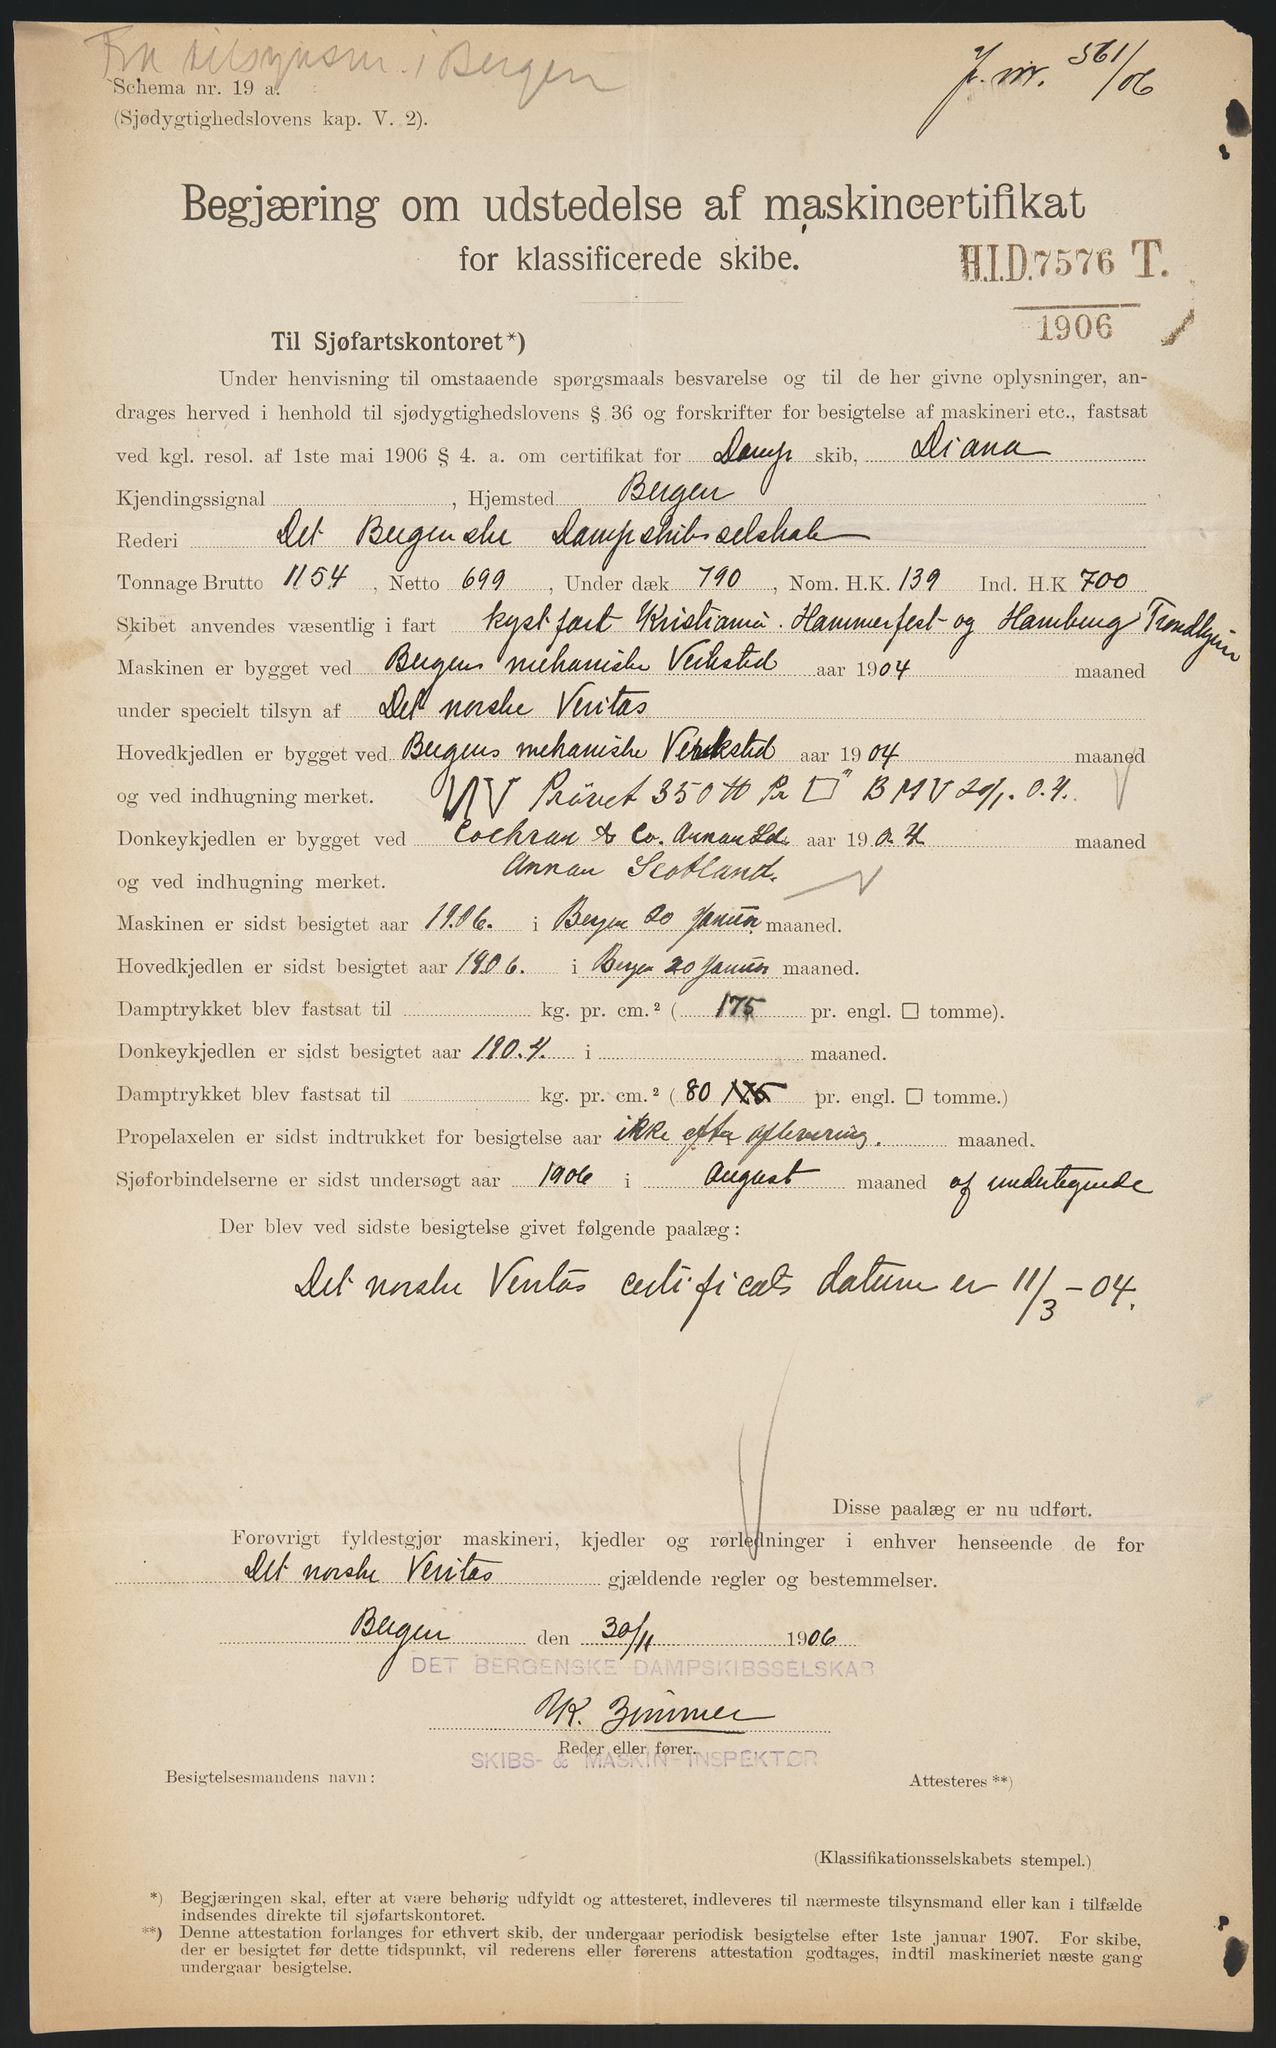 Fra tilsynsm. i Bergen
J. nr. 561/06
Schema nr. 19 a.
(Sjødygtighedslovens kap. V. 2).
Begjæring om udstedelse af maskincertifikat
for klassificerede skibe.
H.I.D. 7576 T.
1906
Til Sjøfartskontoret*)
Under henvisning til omstaaende spørgsmaals besvarelse og til de her givne oplysninger, an-
drages herved i henhold til sjødygtighedslovens § 36 og forskrifter for besigtelse af maskineri etc., fastsat
ved kgl. resol. af 1ste mai 1906 § 4. a. om certifikat for Damp skib, Diana
Kjendingssignal , Hjemsted Bergen
Rederi Det Bergenske Dampskibsselskab
Tonnage Brutto 1154 , Netto 699 , Under dæk 790 , Nom. H.K. 139 Ind. H.K 700
Skibet anvendes væsentlig i fart kystfart Kristiania. Hammerfest og Hamburg Trondhjem
Maskinen er bygget ved Bergens mekaniske Verksted aar 1904 maaned
under specielt tilsyn af Det norske Veritas
Hovedkjedlen er bygget ved Bergens mekaniske Verksted aar 1904 maaned
og ved indhugning merket. NV Prövet 350 ℔ Pr □" B M V 20/1. 0.4.
Donkeykjedlen er bygget ved Cochran & Co. Annan Ld. aar 190.4. maaned
og ved indhugning merket. Annan Scotland.
Maskinen er sidst besigtet aar 1906. i Bergen 20 Januar maaned.
Hovedkjedlen er sidst besigtet aar 1906. i Bergen 20 Januar maaned.
Damptrykket blev fastsat til kg. pr. cm.² ( 175 pr. engl. □ tomme).
Donkeykjedlen er sidst besigtet aar 190.4. i maaned.
Damptrykket blev fastsat til kg. pr. cm.² ( 80 175 pr. engl. □ tomme.)
Propelaxelen er sidst indtrukket for besigtelse aar ikke efter aflevering. maaned.
Sjøforbindelserne er sidst undersøgt aar 1906 i August maaned af undertegnede
Der blev ved sidste besigtelse givet følgende paalæg:
Det norske Veritas certificats datum er 11/3 - 04.
Disse paalæg er nu udført.
Forøvrigt fyldestgjør maskineri, kjedler og rørledninger i enhver henseende de for
Det norske Veritas gjældende regler og bestemmelser.
Bergen den 30/11 1906
DET BERGENSKE DAMPSKIBSSELSKAB
K. Zimmer
Reder eller fører.
SKIBS- & MASKIN-INSPEKTØR
Besigtelsesmandens navn:
Attesteres **)
(Klassifikationsselskabets stempel.)
*) Begjæringen skal, efter at være behørig udfyldt og attesteret, indleveres til nærmeste tilsynsmand eller kan i tilfælde
indsendes direkte til sjøfartskontoret.
**) Denne attestation forlanges for ethvert skib, der undergaar periodisk besigtelse efter 1ste januar 1907. For skibe,
der er besigtet før dette tidspunkt, vil rederens eller førerens attestation godtages, indtil maskineriet næste gang
undergaar besigtelse.